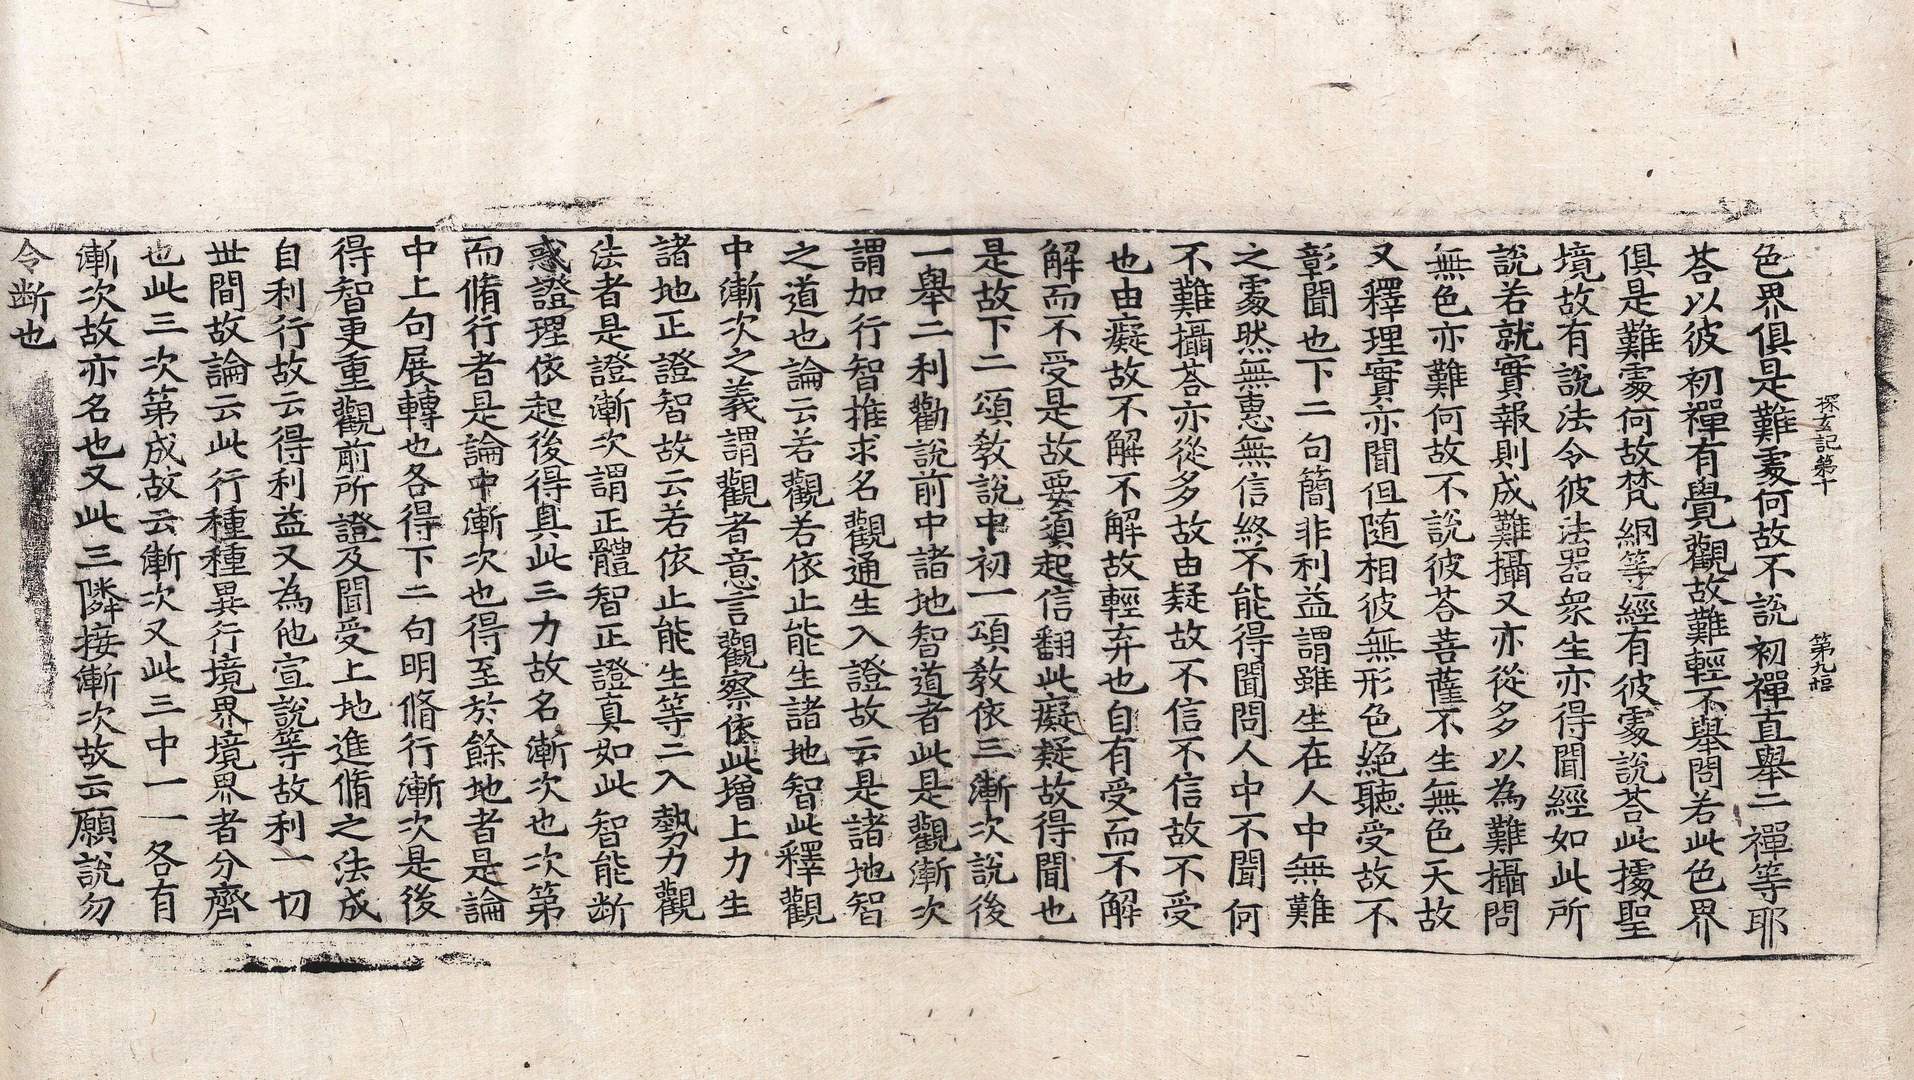 探玄記第十 第九幅
色界俱是難處何故不說初禪直舉二禪等耶
荅以彼初禪有覺觀故難輕不舉問若此色界
俱是難處何故梵網等經有彼處說荅此據聖
境故有說法令彼法器衆生亦得聞經如此所
說若就實報則成難攝又亦從多以為難攝問
無色亦難何故不說彼荅菩薩不生無色天故
又釋理實亦聞但随相彼無形色絕聽受故不
彰聞也下二句簡非利益謂雖生在人中無難
之處然無惠無信終不能得聞問人中不聞何
不難攝荅亦從多故由疑故不信不信故不受
也由癡故不解不解故輕弃也自有受而不解
解而不受是故要須起信翻此癡疑故得聞也
是故下二頌教說中初一頌教依三漸次說後
一舉二利勸說前中諸地智道者此是觀漸次
謂加行智推求名觀通生入證故云是諸地智
之道也論云若觀若依止能生諸地智此釋觀
中漸次之義謂觀者意言觀察依此增上力生
諸地正證智故云若依止能生等二入勢力觀
法者是證漸次謂正體智正證真如此智能断
惑證理依起後得真此三力故名漸次也次第
而脩行者是論中漸次也得至於餘地者是論
中上句展轉也各得下二句明脩行漸次是後
得智更重觀前所證及聞受上地進脩之法成
自利行故云得利益又為他宣說等故利一切
世間故論云此行種種異行境界境界者分齊
也此三次第成故云漸次又此三中一一各有
漸次故亦名也又此三隣接漸次故云願說勿
令断也